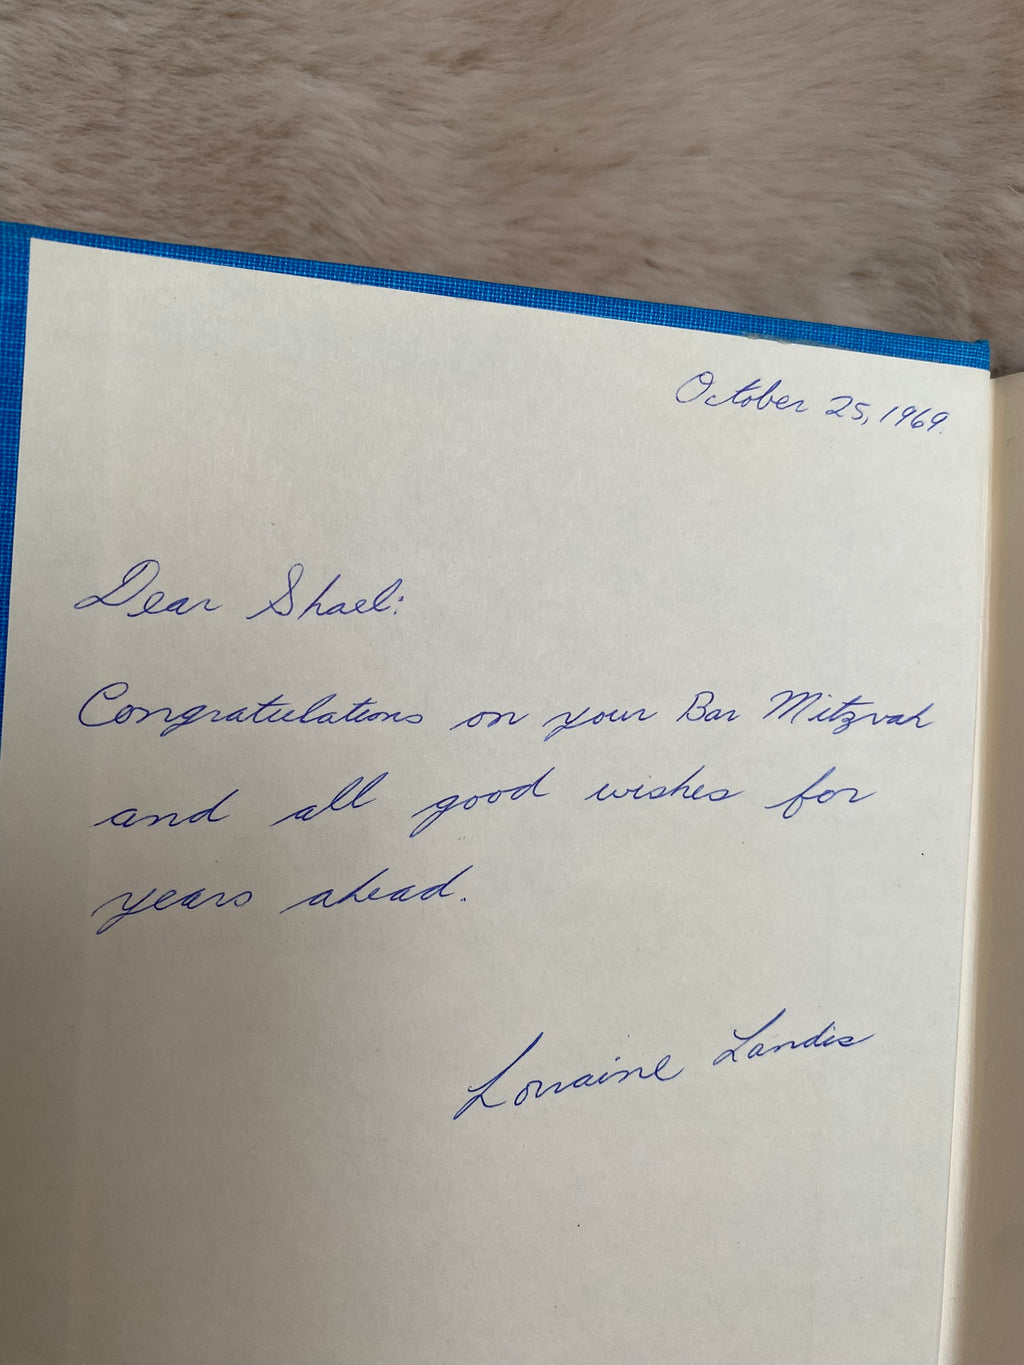 October 25, 1969.
Dear Shael:
Congratulations on your Bar Mitzvah
and all good wishes for
years ahead.
Lorraine Landis